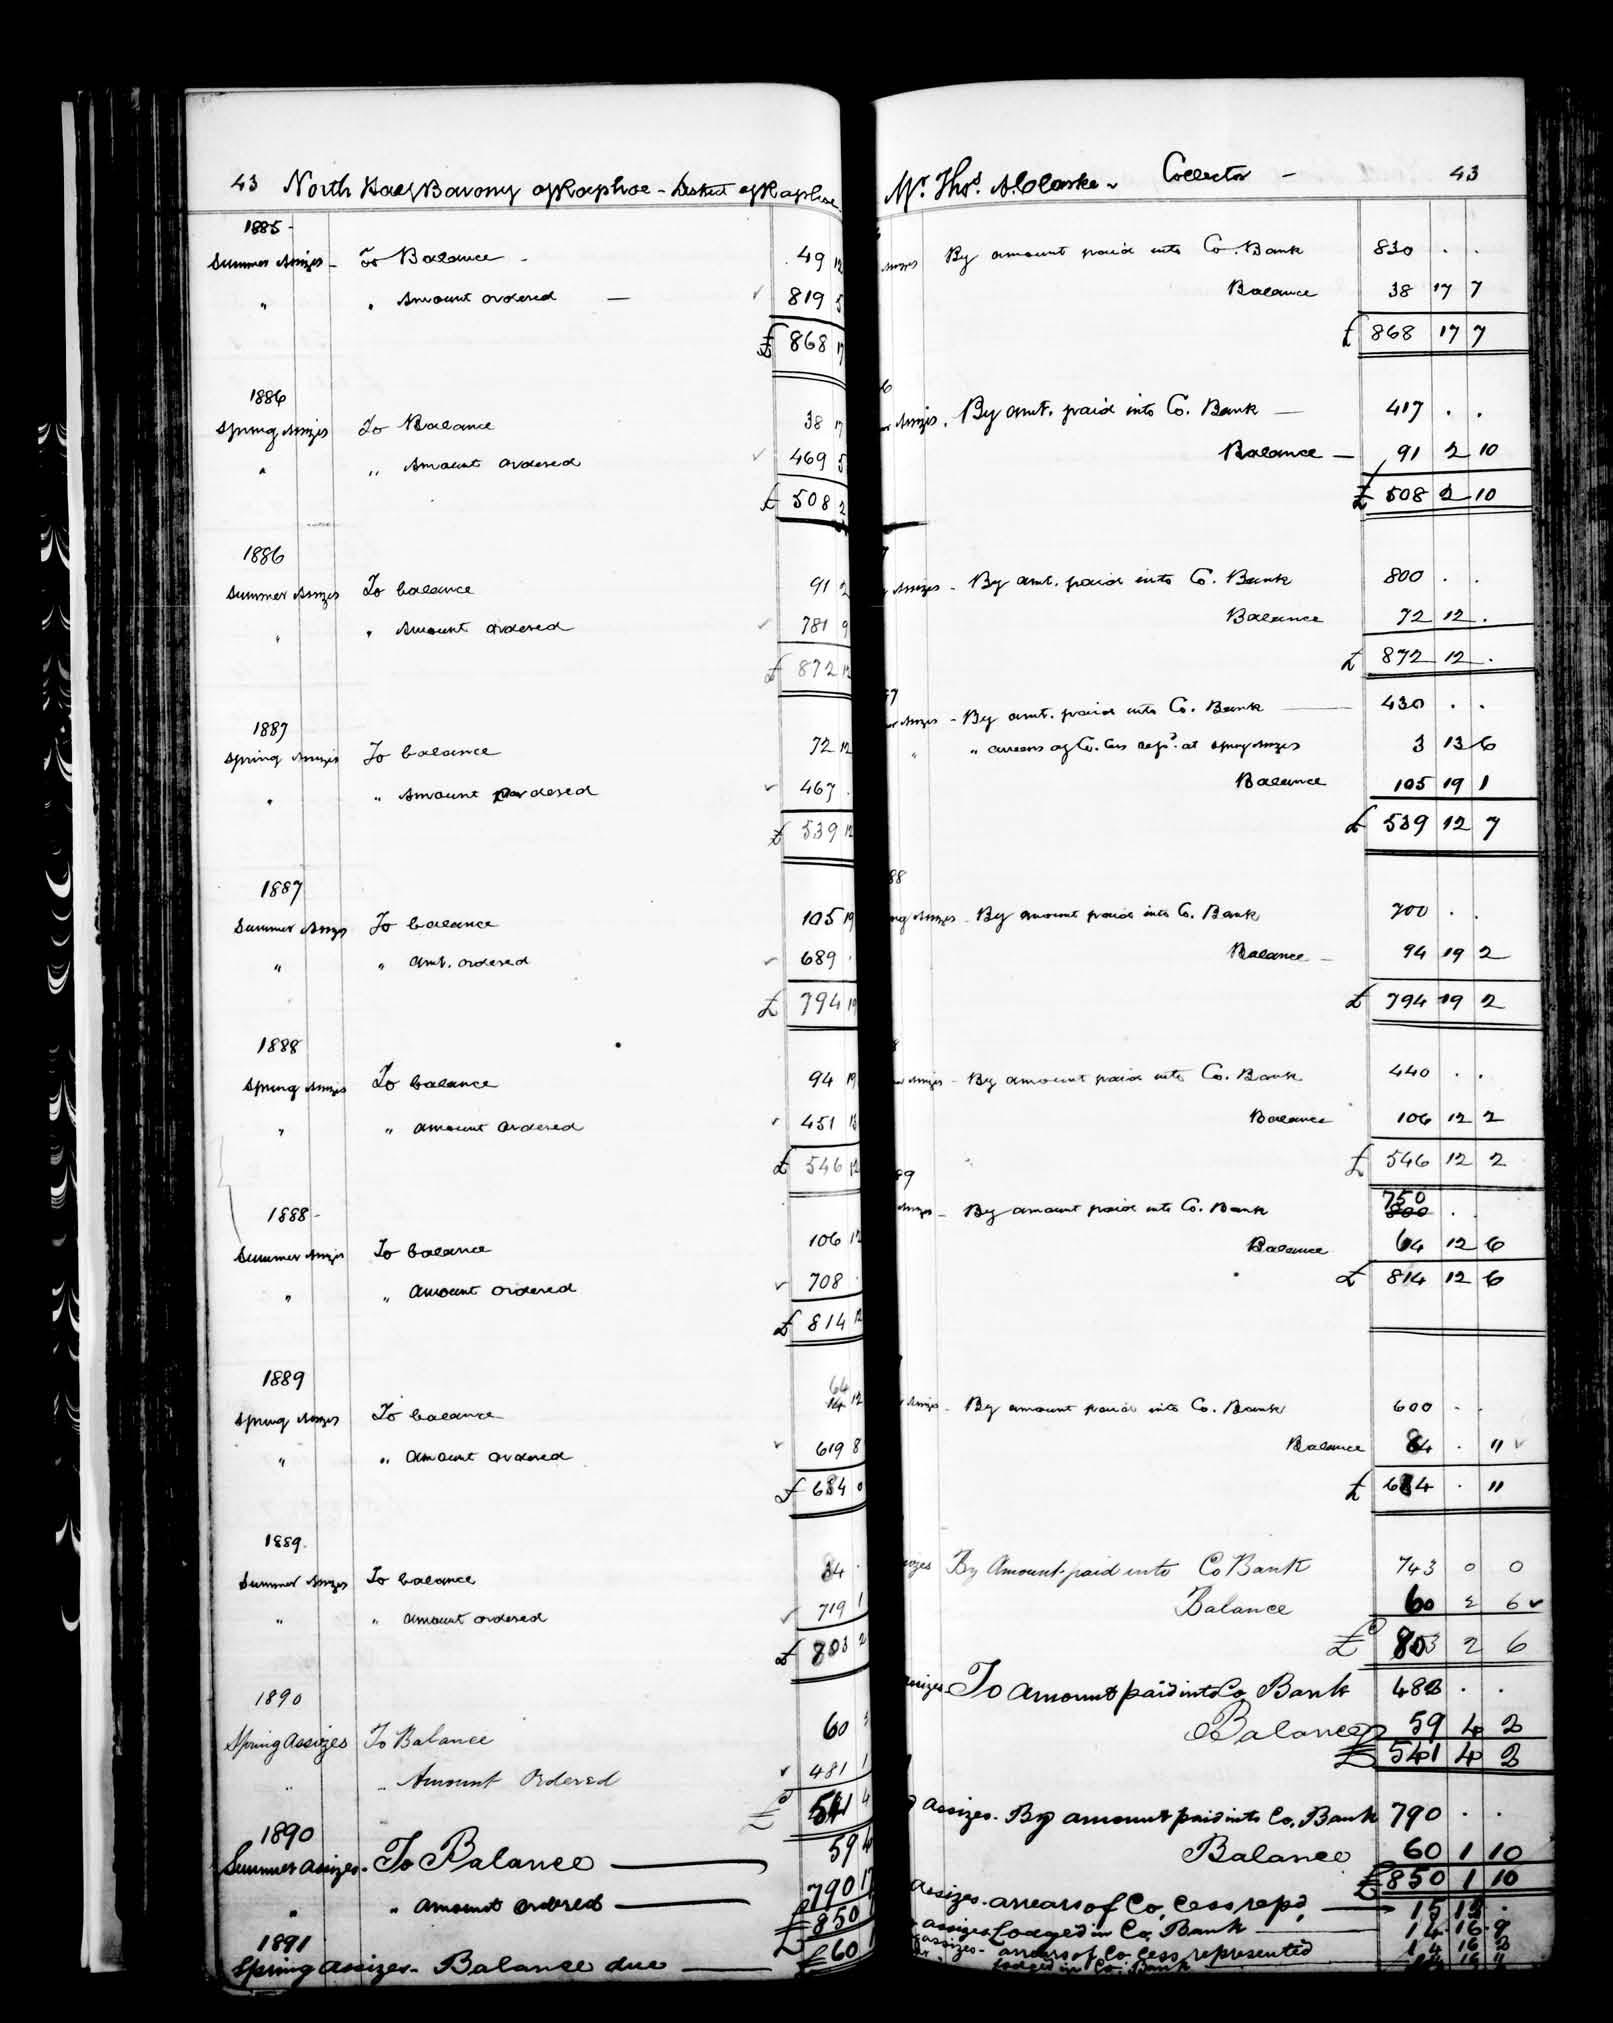 43 North Half Barony of Raphoe - District of Raphoe
1885 -
Summer Assizes - To Balance - 49 12
" " Amount ordered — ✓ 819 5
£ 868 17
1886
Spring Assizes To Balance 38 17
" " Amount ordered ✓ 469 5
£ 508 2
1886
Summer Assizes To balance 91 2
" " Amount ordered ✓ 781 9
£ 872 12
1887
Spring Assizes To balance 72 12
" " Amount ordered ✓ 467 .
£ 539 12
1887
Summer Assizes To balance 105 19
" " Amt. ordered ✓ 689 .
£ 794 19
1888
Spring Assizes To balance 94 19
" " Amount ordered ✓ 451 13
£ 546 12
1888 -
Summer Assizes To balance 106 12
" " Amount ordered ✓ 708 .
£ 814 12
1889
Spring Assizes To balance 64 12
" " Amount ordered ✓ 619 8
£ 684 0
1889.
Summer Assizes To balance 84 .
" " Amount ordered ✓ 719 1
£ 803 2
1890
Spring Assizes To Balance 60
" " Amount Ordered ✓ 481 1
£ 541 4
1890
Summer Assizes - To Balance — 59 4
" " Amount ordered — 790 17
£ 850
1891
Spring Assizes - Balance due — £ 60
Mr. Thos. A. Clarke - Collector - 43
Assizes By amount paid into Co. Bank 830 . .
Balance 38 17 7
£ 868 17 7
6
Assizes. By amt. paid into Co. Bank — 417 . .
Balance — 91 2 10
£ 508 2 10
7
Assizes - By amt. paid into Co. Bank 800 . .
Balance 72 12 .
£ 872 12 .
7
Assizes - By amt. paid into Co. Bank — 430 . .
" " arrears of Co. Cess repd. at Spring Assizes 3 13 6
Balance 105 19 1
£ 539 12 7
88
ng Assizes - By amount paid into Co. Bank 700 . .
Balance - 94 19 2
£ 794 19 2
8
Assizes - By amount paid into Co. Bank 440 . .
Balance 106 12 2
£ 546 12 2
89
Assizes - By amount paid into Co. Bank 750 800 . .
Balance 64 12 6
£ 814 12 6
Assizes - By amount paid into Co. Bank 600 . .
Balance 84 . " ✓
£ 684 . "
izes By Amount paid into Co Bank 743 0 0
Balance 60 2 6 ✓
£ 803 2 6
ssizes - To amount paid into Co Bank 482 . .
Balance 59 4 2
£ 541 4 2
Assizes - By amount paid into Co. Bank 790 . .
Balance 60 1 10
£ 850 1 10
Assizes - arrears of Co. Cess repd. —
Assizes Lodged in Co. Bank —
assizes - arrears of Co. Cess represented
Lodged in Co. Bank